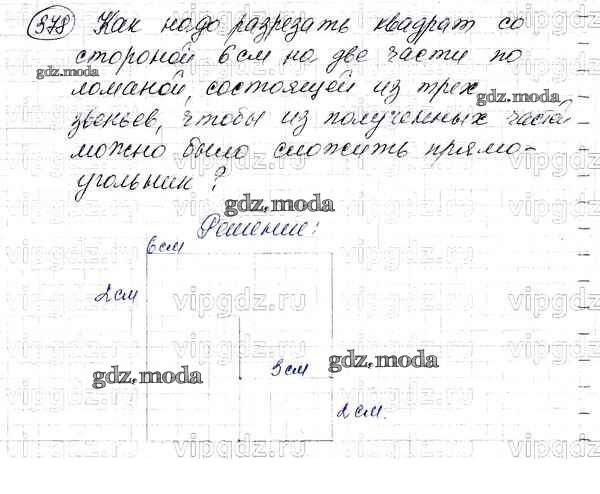 378 Как надо разрезать квадрат со
стороной 6 см на две части по
ломаной, состоящей из трех
звеньев, чтобы из полученных частей
можно было сложить прямо-
угольник?
Решение:
6 см
2 см
3 см
2 см.
gdz.moda
gdz.moda
gdz.moda
gdz.moda
gdz.moda
vipgdz.ru